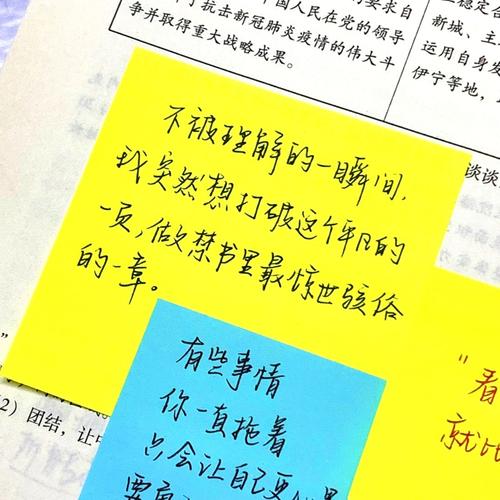 了抗击新冠肺炎疫情的伟大斗
国人民在党的领导
争并取得重大战略成果。
的要求自
稳定合
新城、主
运用自身发
伊宁等地，
谈谈
不被理解的一瞬间，
我突然想打破这个平凡的
一页，做禁书里最惊世骇俗
的一章。
有些事情
你一直拖着
只会让自己更
"看
就比
2）团结，让中